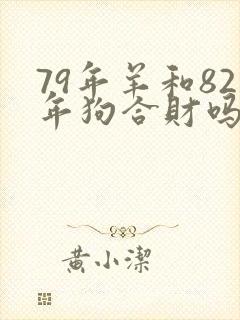 79年羊和82
年狗合財吗
黄小潔